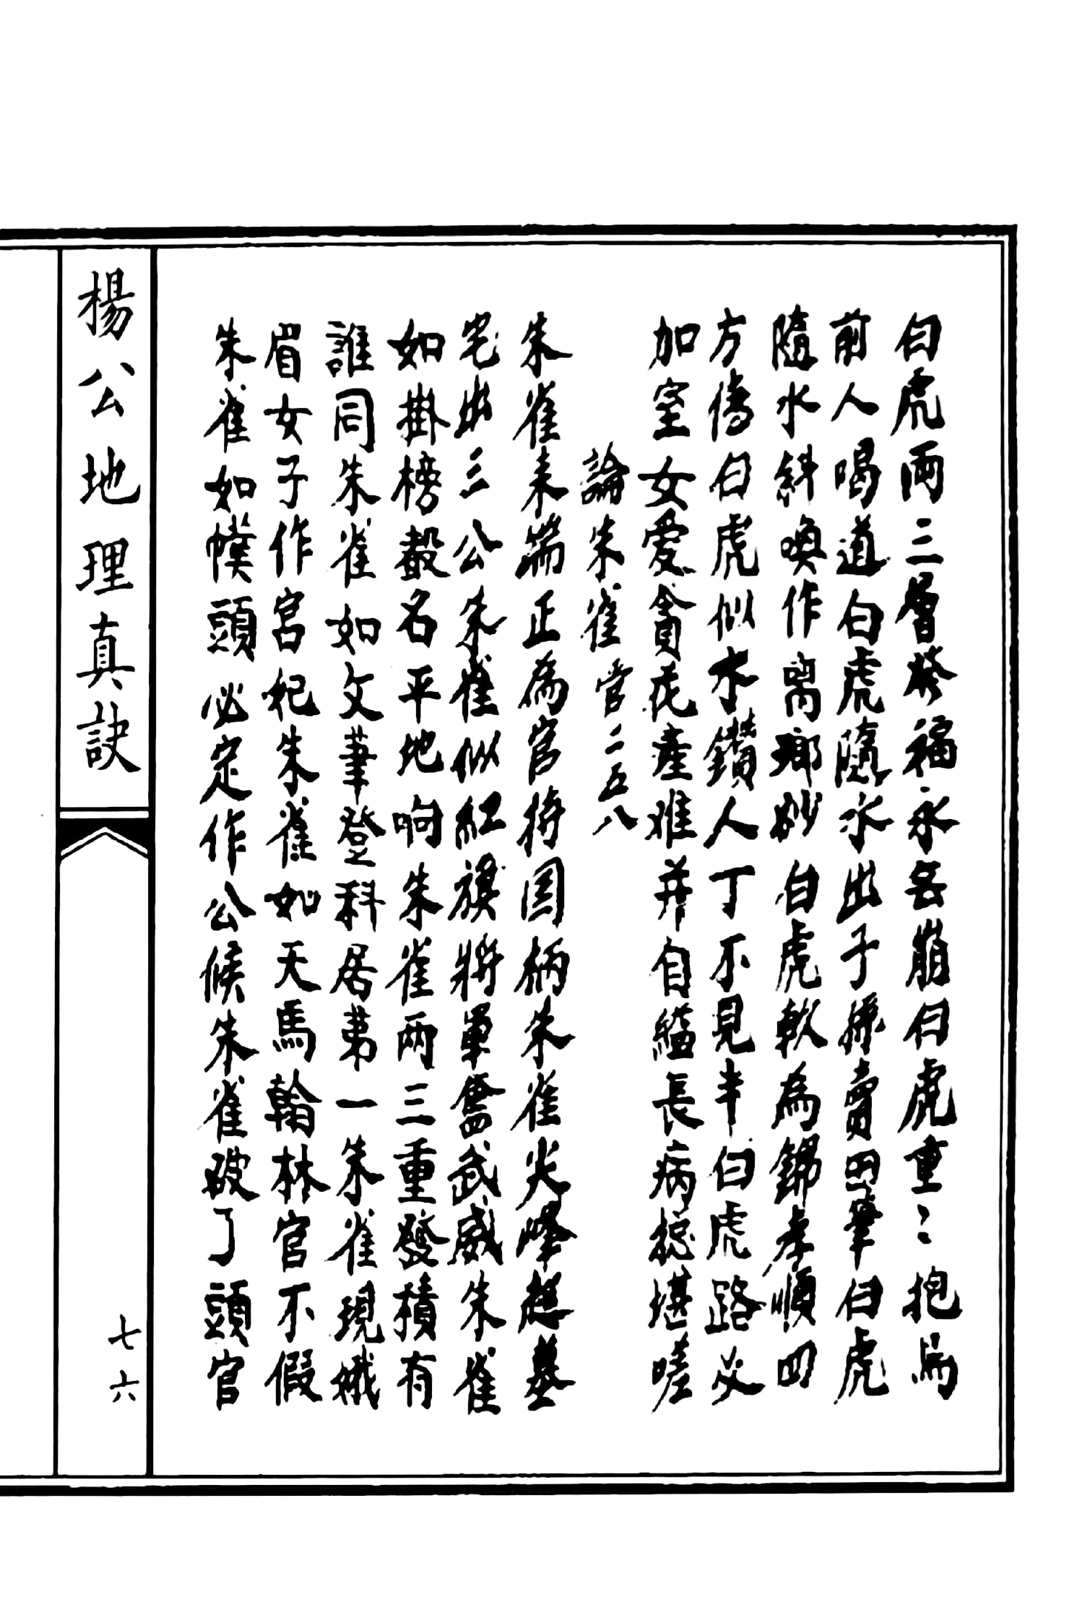 白虎兩三層發福永無崩白虎重〻抱馬
前人喝道白虎隨水出子孫賣田筆白虎
隨水斜喚作离鄉妙白虎軟為錦孝順四
方傳白虎似木鑽人丁不見半白虎路必
加室女愛貪花產难并自縊長病挖堪嗟
論朱雀宫二五八
朱雀来端正為官持国柄朱雀尖峰趂墓
宅出三公朱雀似紅旗將軍奮武威朱雀
如掛榜聲名平地响朱雀兩三重發積有
誰同朱雀如文筆登科居第一朱雀現娥
眉女子作宫妃朱雀如天馬翰林官不假
朱雀如幞頭必定作公候朱雀破了頭官
楊公地理真訣
七六